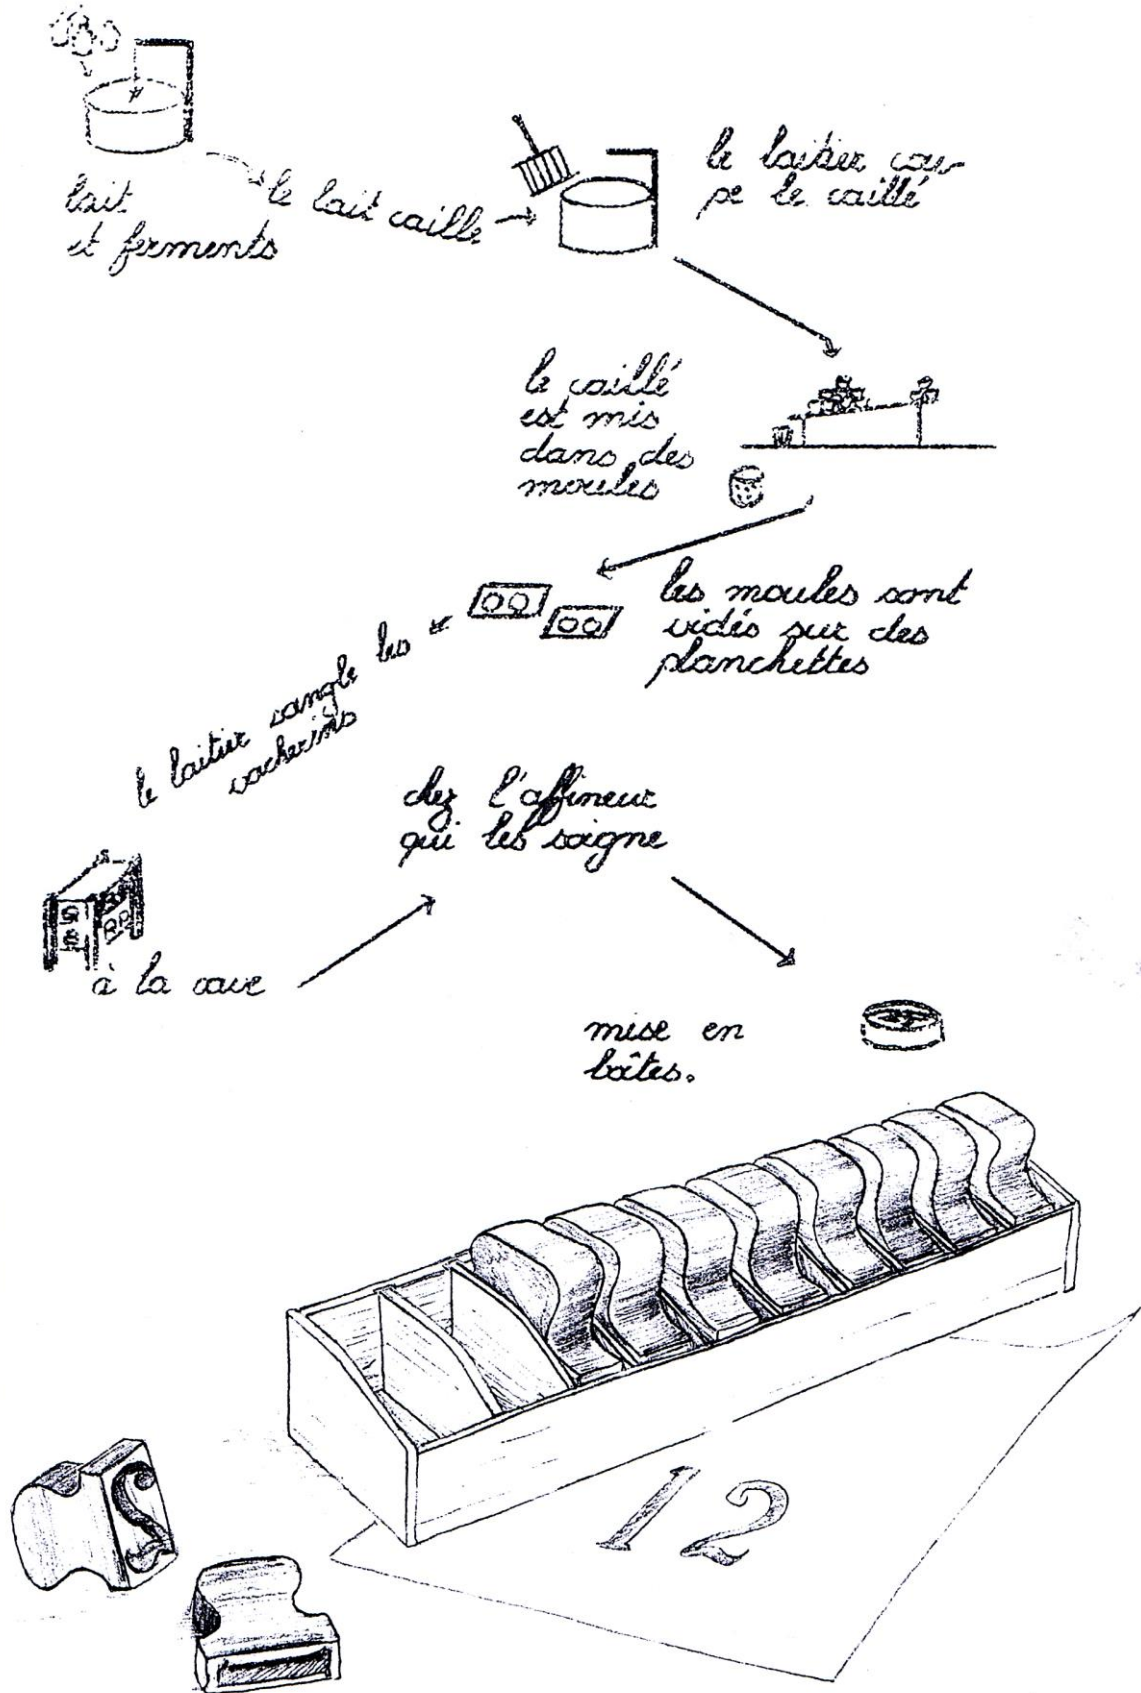 lait
et ferments
le lait caille
le laitier cou-
pe le caillé
le caillé
est mis
dans des
moules
les moules sont
vidés sur des
planchettes
le laitier sangle les
vacherins
à la cave
chez l'affineur
qui les soigne
mise en
boîtes.
12
2